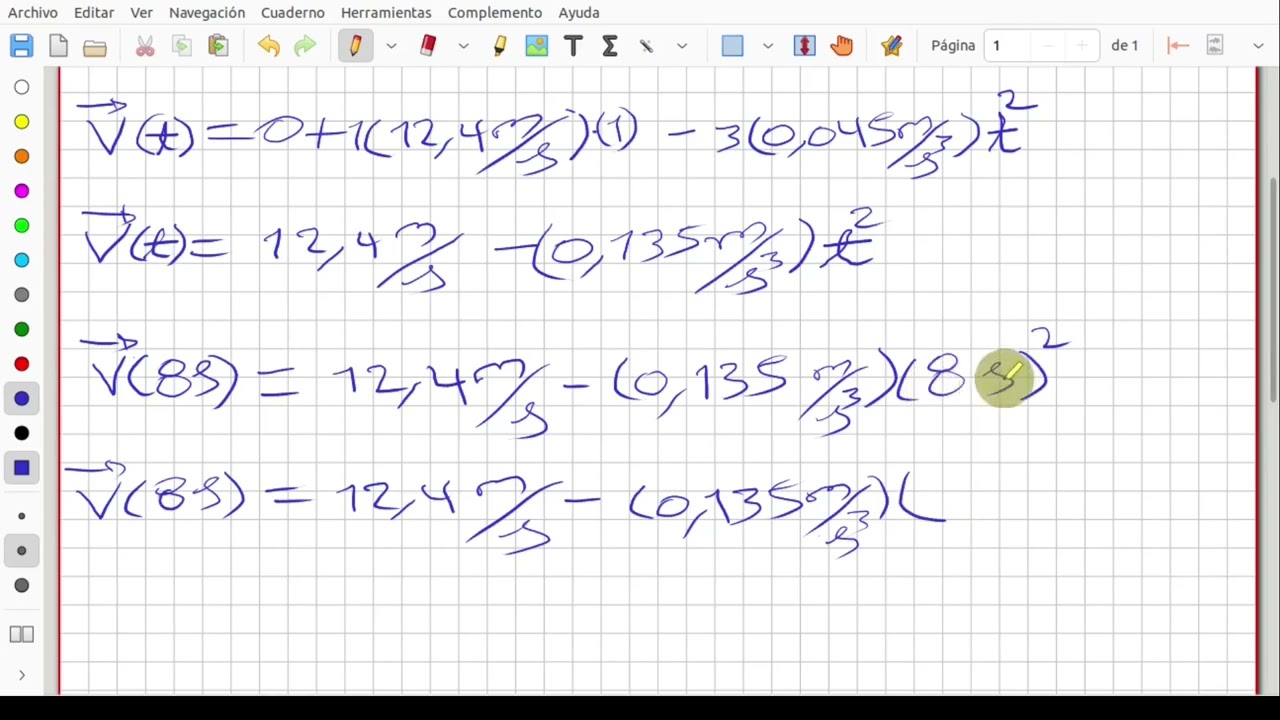 Archivo Editar Ver Navegación Cuaderno Herramientas Complemento Ayuda
T Σ Página 1 de 1
V(t) = 0 + 1(12,4 m/s)·(1) - 3(0,045 m/s³)t²
V(t) = 12,4 m/s - (0,135 m/s³)t²
V(8s) = 12,4 m/s - (0,135 m/s³)(8 s)²
V(8s) = 12,4 m/s - (0,135 m/s³)(